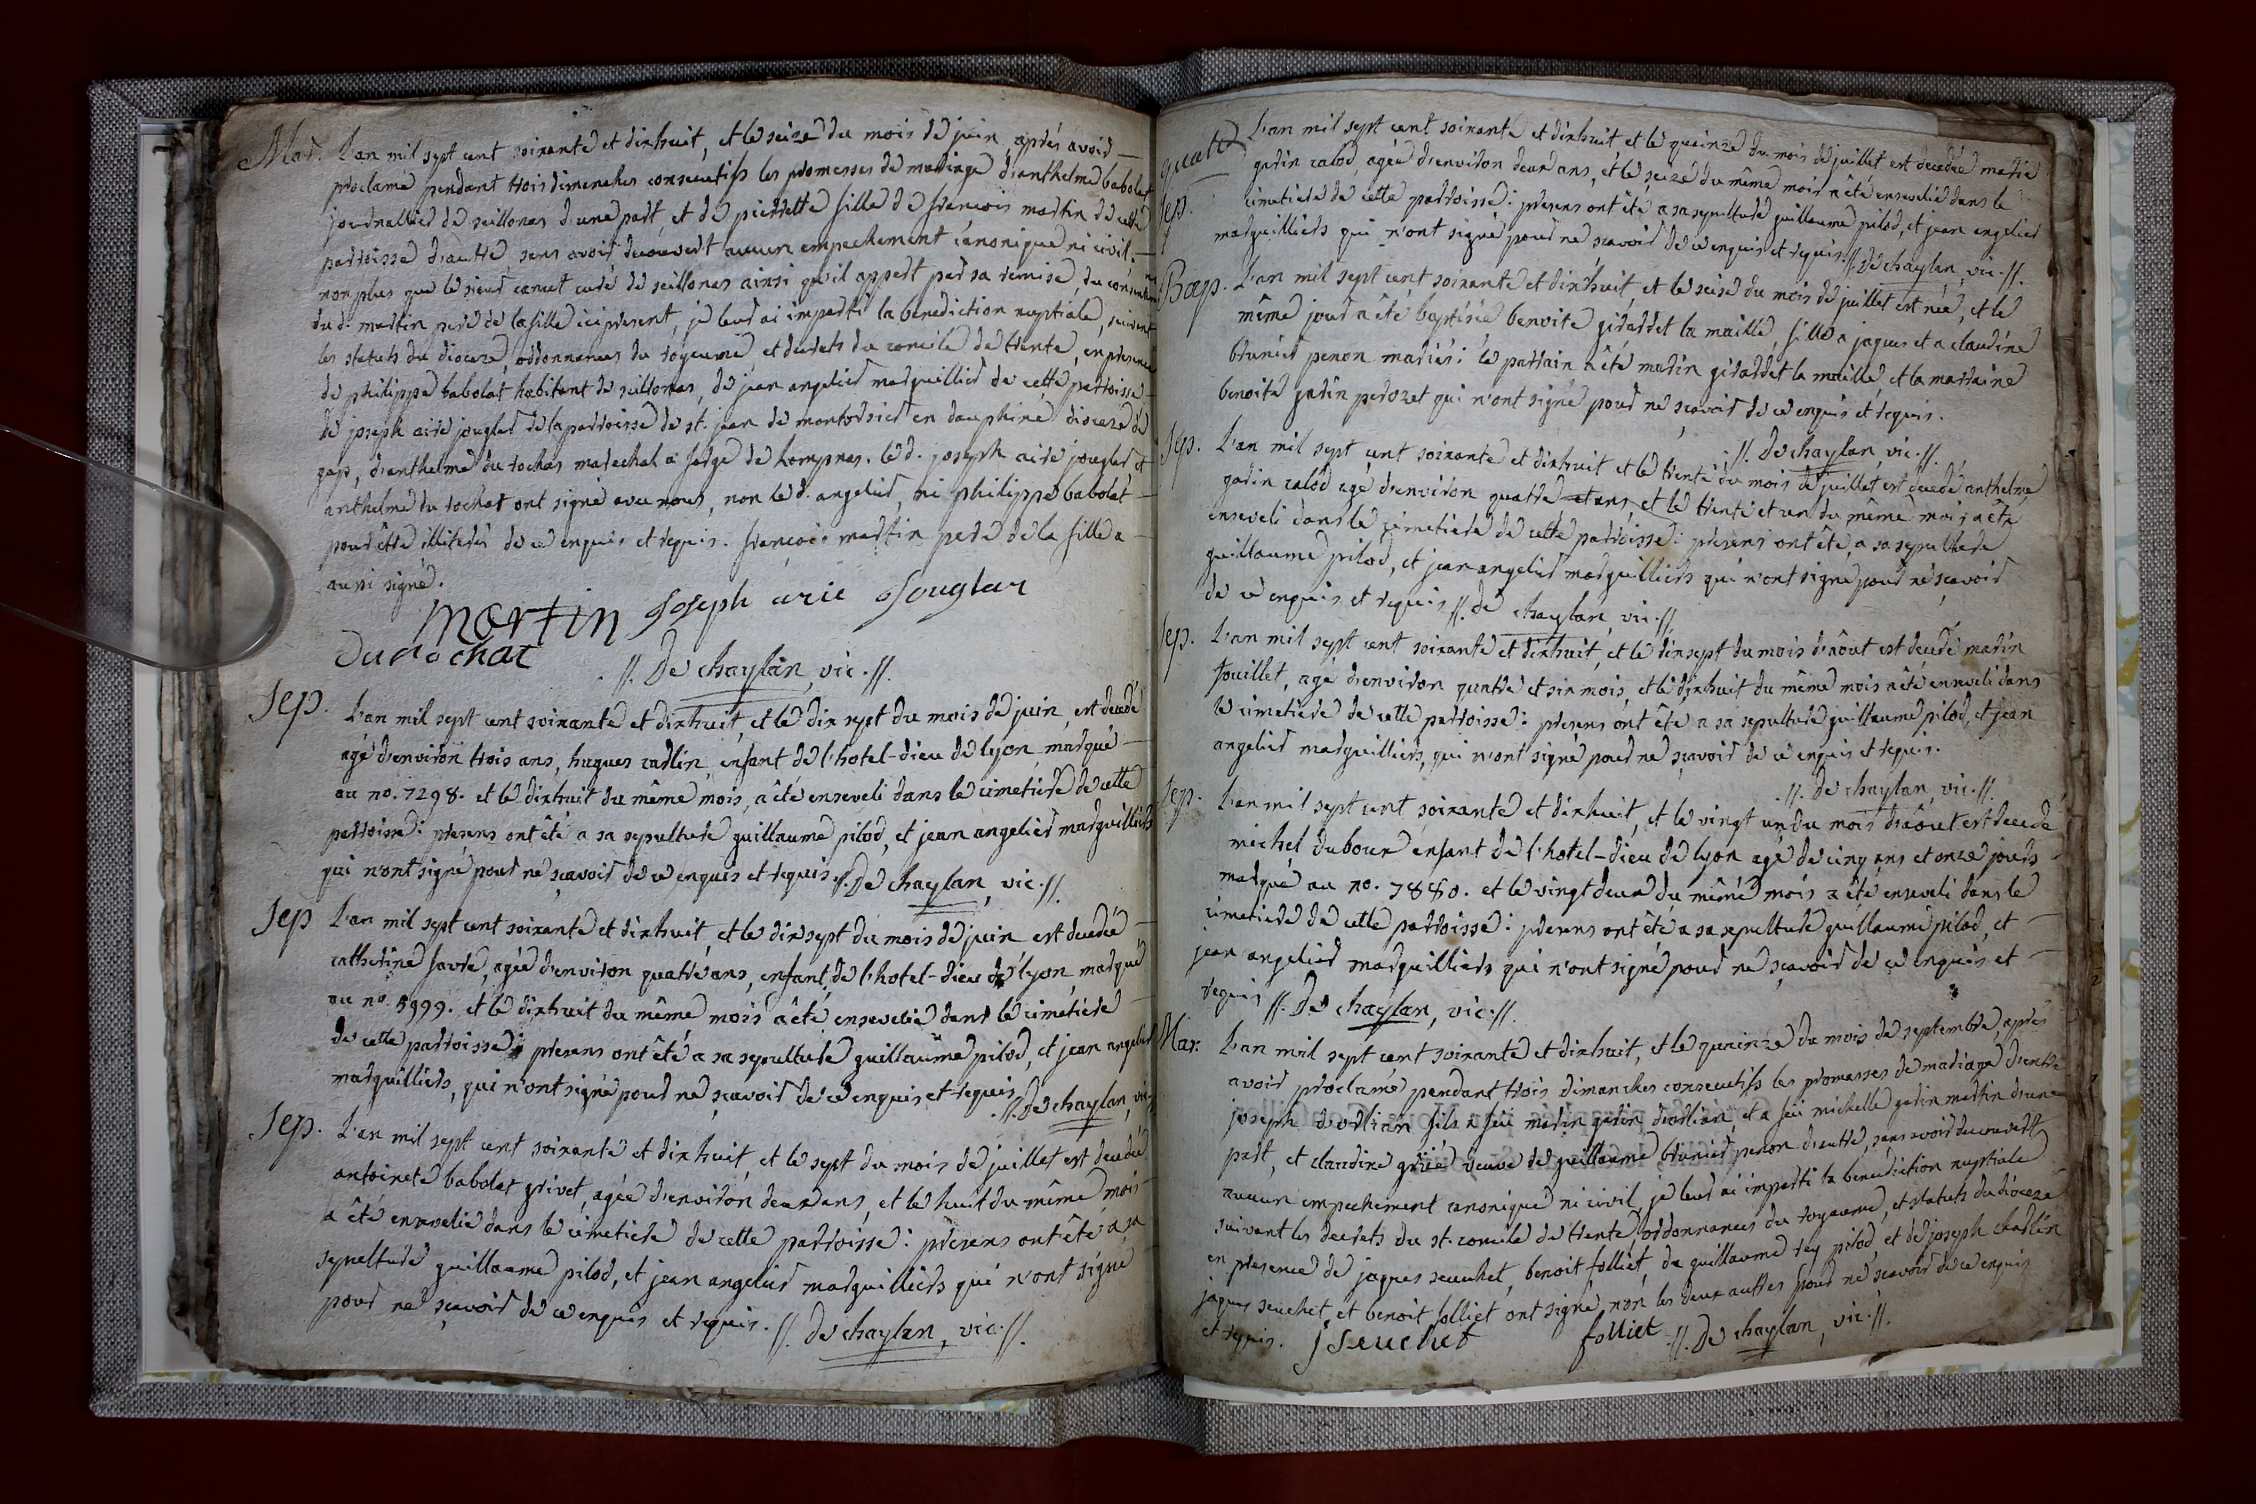 Mar. L'an mil sept cent soixante et dixhuit, et le seize du mois de juin après avoir
proclamé pendant trois dimenches consecutifs les promesses de mariage d'anthelme babolat
journallier de seillonas d'une part, et de pierrette fille de françois martin de cette
parroisse d'autre, sans avoir decouvert aucun empechement canonique ni civil,
non plus que le sieur curé de seillonas ainsi qu'il appert par sa remise, du consentement
du d. martin pere de la fille ici present, je leur ai imparti la benediction nuptiale, suivant
les statuts du dioceze, ordonnances du royaume, et decrets du concile de trente, en presence
de philippe babolat habitant de seillonas, de jean angelier marguillier de cette parroisse
de joseph arie jouglar de la parroisse de st. jean de montorsier en dauphiné dioceze de
gap, d'anthelme du rochat marechal a forge de lompnas. le d. joseph arie jouglar et
anthelme du rochat ont signé avec nous, non le d. angelier, ni philippe babolat
pour être illiterés de ce enquis et requis. françois martin pere de la fille a
aussi signé.
Martin Joseph arie Jouglar
Durochat
//. De chaylan, vic. //.
Sep. L'an mil sept cent soixante et dixhuit, et le dix sept du mois de juin, est decedé
agé d'environ trois ans, hugues carlin, enfant de l'hotel-dieu de lyon, marqué
au no. 7298. et le dixhuit du même mois, a été enseveli dans le cimetiere de cette
parroisse: presens ont été a sa sepulture guillaume pilod, et jean angelier marguilliers
qui n'ont signé pour ne sçavoir de ce enquis et requis. //. De chaylan, vic. //.
Sep L'an mil sept cent soixante et dixhuit, et le dix sept du mois de juin est decedée
catherine favre, agée d'environ quatre ans, enfant de l'hotel-dieu de lyon, marqué
au no. 5999. et le dixhuit du même mois a été ensevelie dans le cimetiere
de cette parroisse: presens ont été a sa sepulture guillaume pilod, et jean angelier
marguilliers, qui n'ont signé pour ne sçavoir de ce enquis et requis.
//. De chaylan, vic. //
Sep. L'an mil sept cent soixante et dixhuit, et le sept du mois de juillet est decedée
antoinete babolat grivet, agée d'environ deux ans, et le huit du même mois
a été ensevelie dans le cimetiere de cette parroisse: presens ont été a sa
sepulture guillaume pilod, et jean angelier marguilliers qui n'ont signé
pour ne sçavoir de ce enquis et requis. //. De chaylan, vic. //.
quatre
Sep. L'an mil sept cent soixante et dixhuit et le quinze du mois de juillet est decedée marie
garin calod, agée d'environ deux ans, et le seize du même mois a été ensevelie dans le
cimetiere de cette parroisse: presens ont été a sa sepulture guillaume pilod, et jean angelier
marguilliers qui n'ont signé pour ne sçavoir de ce enquis et requis. //. De chaylan, vic. //.
Bap. L'an mil sept cent soixante et dixhuit, et le seize du mois de juillet est née, et le
même jour a été baptisée benoite girardet la maille, fille a jaques et a claudine
brunier penon mariés: le parrain a été marin girardet la maille, et la marraine
benoite garin perozet qui n'ont signé pour ne sçavoir de ce enquis et requis.
//. De chaylan, vic. //.
Sep. L'an mil sept cent soixante et dixhuit et le trente du mois de juillet est decedé anthelme
garin calod agé d'environ quatre ans, et le trente et un du même mois a été
enseveli dans le cimetiere de cette parroisse: presens ont été, a sa sepulture
guillaume pilod, et jean angelier marguilliers qui n'ont signé pour ne sçavoir
de ce enquis et requis //. de chaylan, vic. //.
Sep. L'an mil sept cent soixante et dixhuit, et le dixsept du mois d'août est decedé marin
fouillet, agé d'environ quatre et six mois, et le dixhuit du même mois a été enseveli dans
le cimetiere de cette parroisse: presens ont été a sa sepulture guillaume pilod, et jean
angelier marguilliers, qui n'ont signé pour ne sçavoir de ce enquis et requis.
//. De chaylan, vic. //.
Sep. L'an mil sept cent soixante et dixhuit, et le vingt un du mois d'août est decedé
michel dubour enfant de l'hotel-dieu de lyon agé de cinq ans et onze jours
marqué au no. 7880. et le vingt deux du même mois a été enseveli dans le
cimetiere de cette parroisse: presens ont été a sa sepulture guillaume pilod, et
jean angelier marguilliers qui n'ont signé pour ne sçavoir de ce enquis et
requis //. De chaylan, vic. //.
Mar. L'an mil sept cent soixante et dixhuit, et le quinze du mois de septembre, après
avoir proclamé pendant trois dimanches consecutifs les promesses de mariage d'entre
joseph d'orlian fils a feu marin garin d'orlian, et a feue michelle garin martin d'une
part, et claudine grivé veuve de guillaume brunier penon d'autre, sans avoir decouvert
aucun empechement canonique ni civil, je leur ai imparti la benediction nuptiale
suivant les decrets du st. concile de trente, ordonnances du royaume, et statuts du dioceze
en presence de jaques seuchet, benoit folliet, de guillaume rey pilod, et de joseph charlin
jaques seuchet, et benoit folliet ont signé, non les deux autres pour ne sçavoir de ce enquis
et requis. J Seuchet folliet //. De chaylan, vic. //.